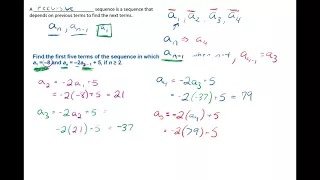 A recursive sequence is a sequence that
depends on previous terms to find the next terms.
aₙ, aₙ₋₁, a₁
a₁, a₂, a₃, a₄
aₙ ⇒ a₄
aₙ₋₁ when n=4, aₙ₋₁ = a₃
Find the first five terms of the sequence in which
a₁ = -8 and aₙ = -2aₙ₋₁ + 5, if n ≥ 2.
a₂ = -2a₁ + 5
= -2(-8) + 5 = 21
a₃ = -2a₂ + 5 =
-2(21) + 5 = -37
a₄ = -2a₃ + 5
= -2(-37) + 5 = 79
a₅ = -2(a₄) + 5
= -2(79) + 5